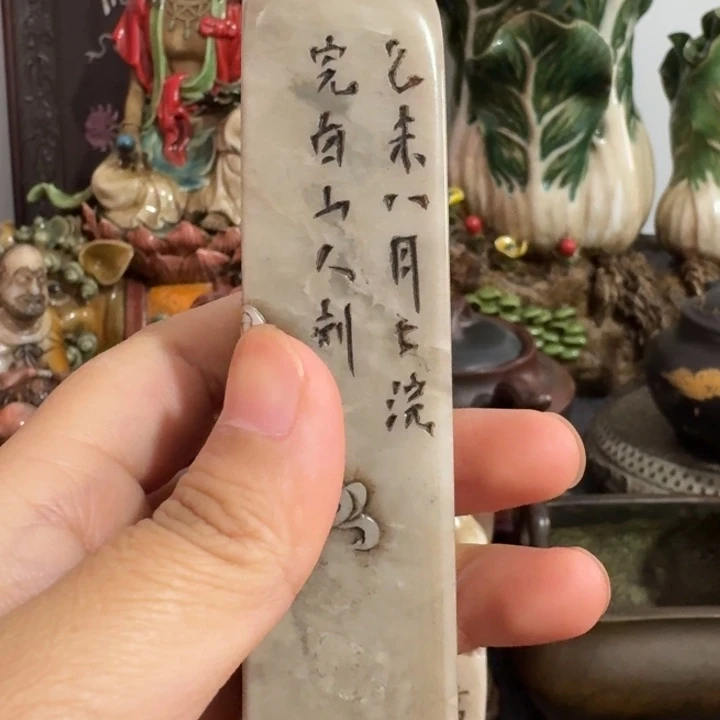 乙未八月上浣
完白山人刻